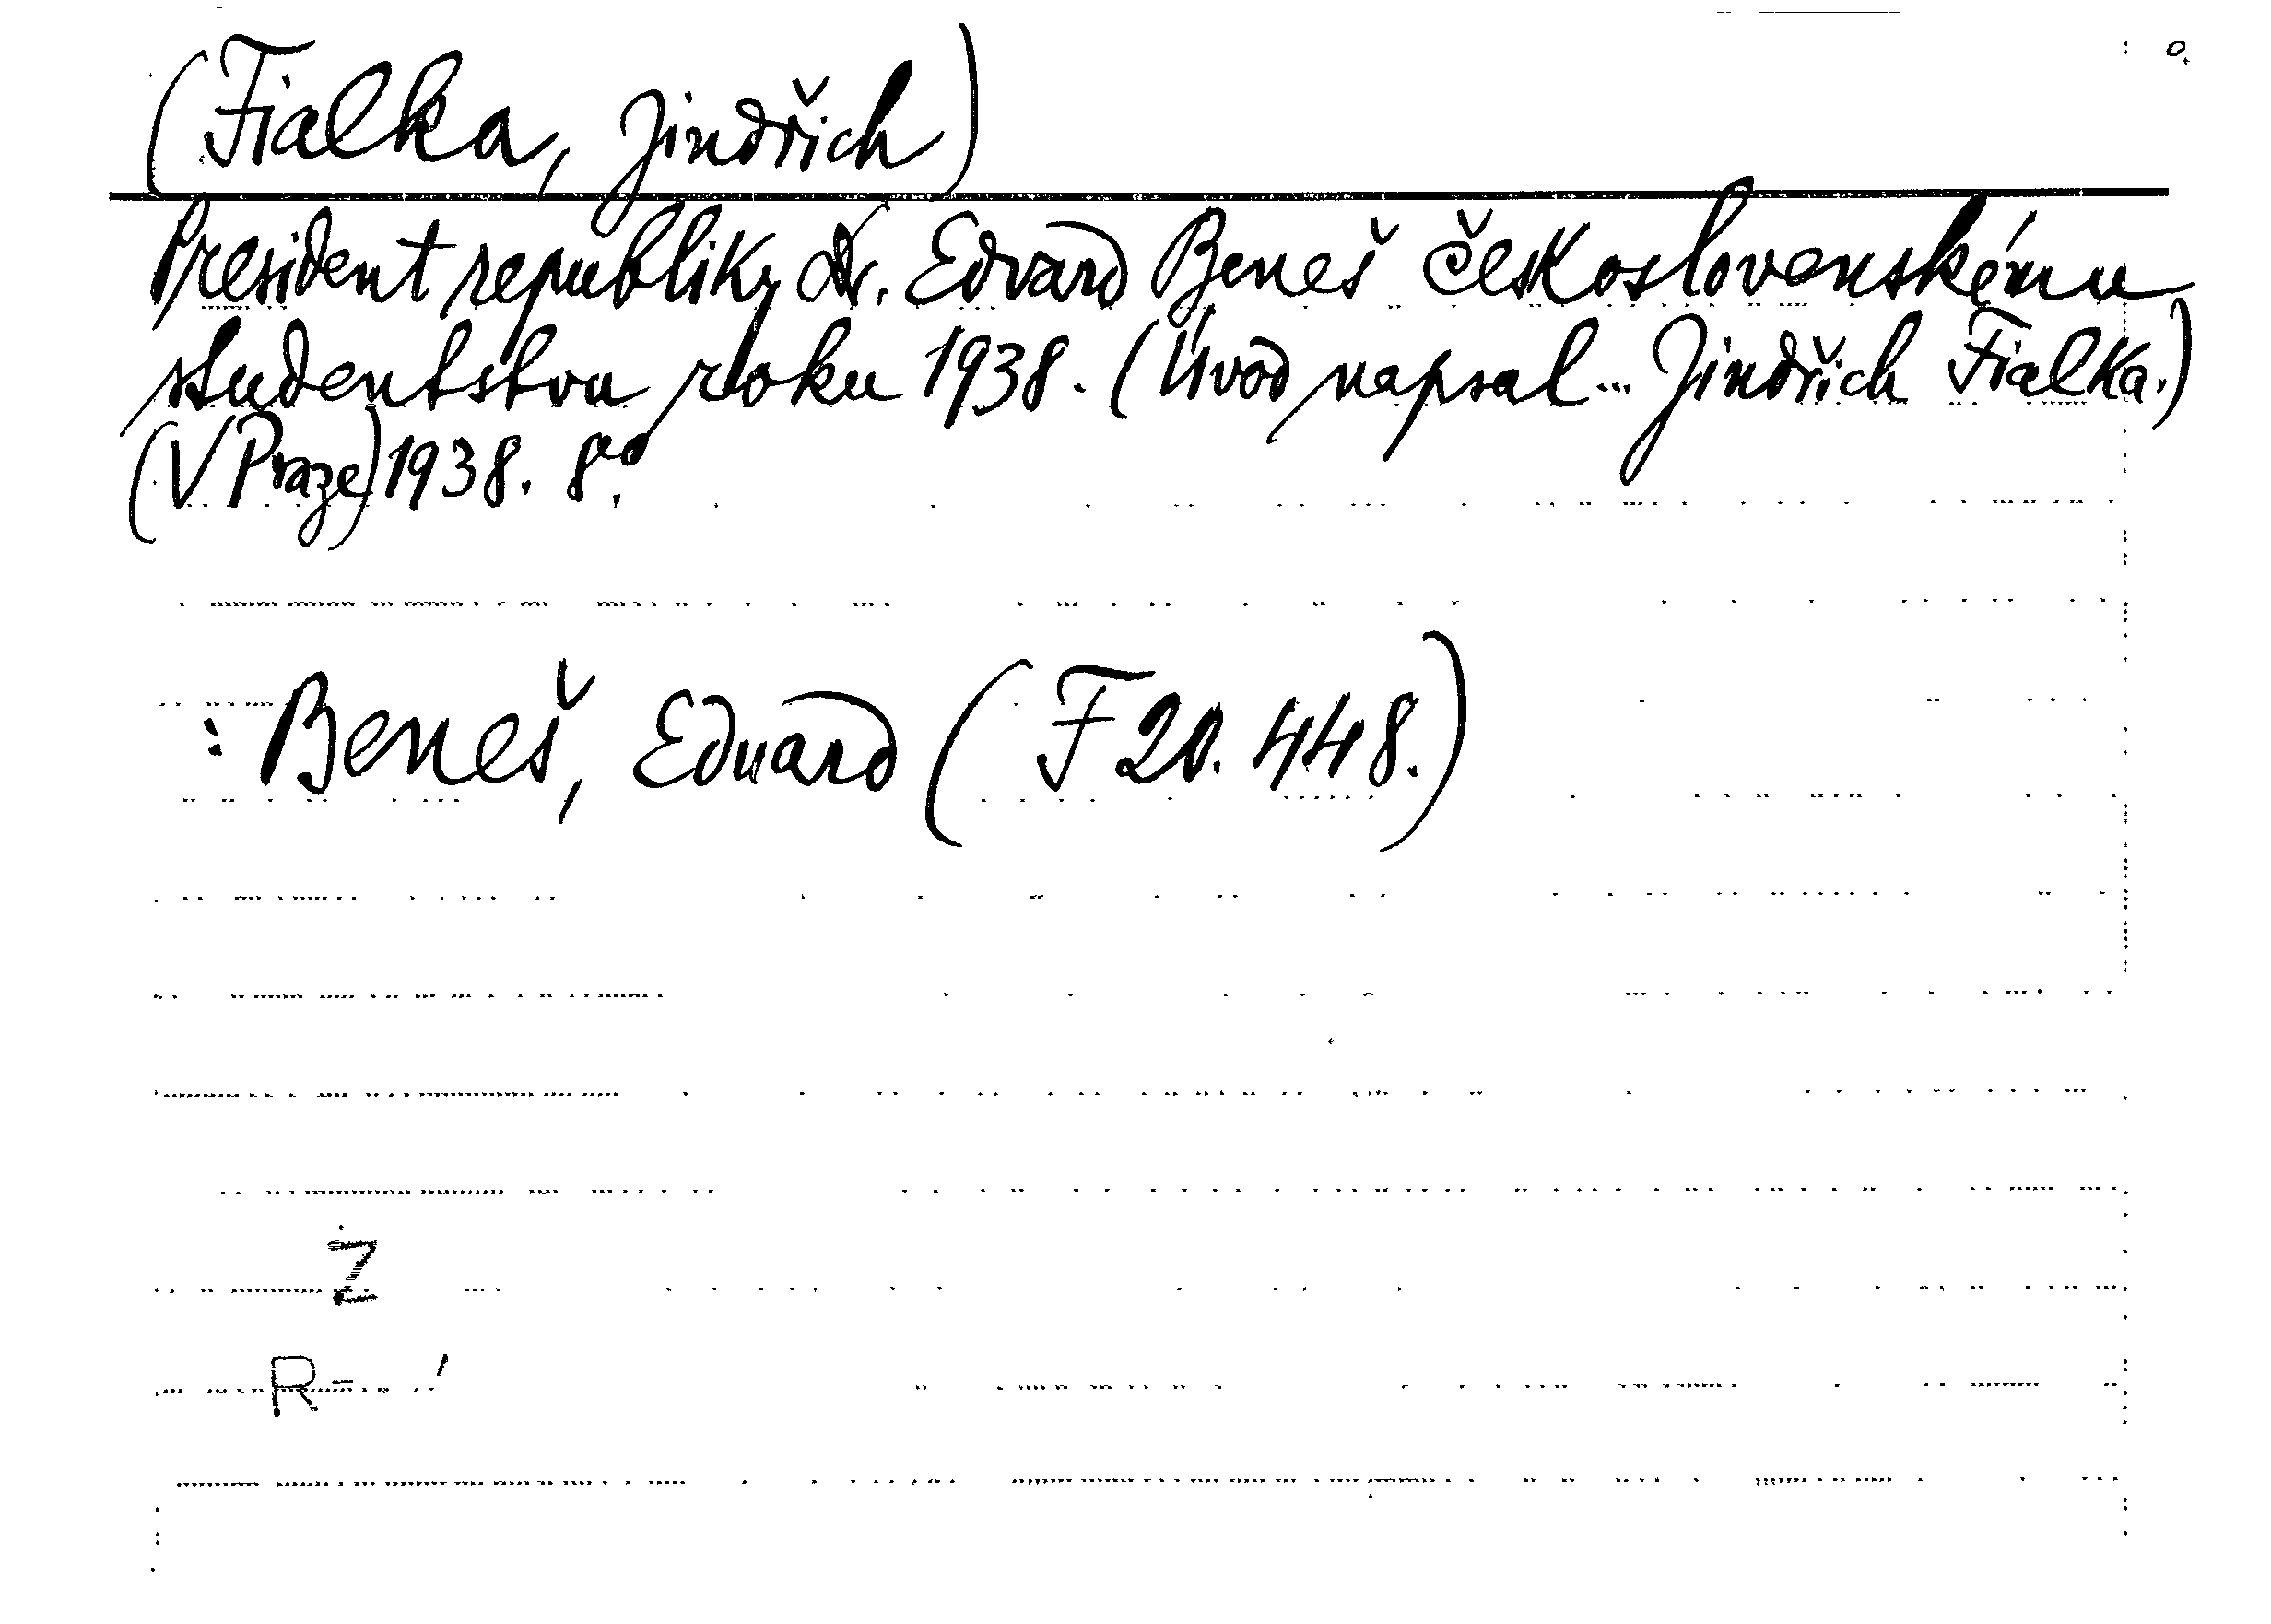 (Fialka, Jindřich)
President republiky Dr. Edvard Beneš československému
studentstvu roku 1938. (Úvod napsal... Jindřich Fialka.)
(V Praze) 1938. 8°.
: Beneš, Eduard (F 20.448.)
Z
R-